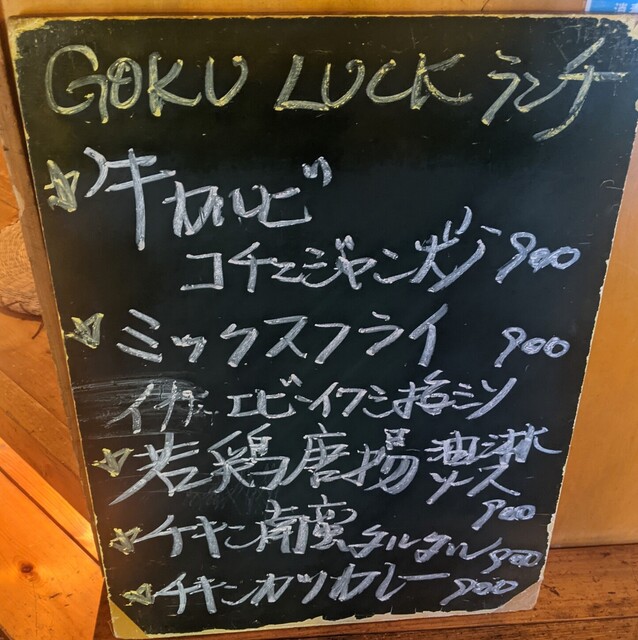 GOKU LUCK ランチ
牛カルビ
コチュジャン炒 900
ミックスフライ 900
エビ・イワシ梅ミソ
若鶏唐揚 油淋
ソース
900
チキン南蛮タルタル 900
チキンカツカレー 900